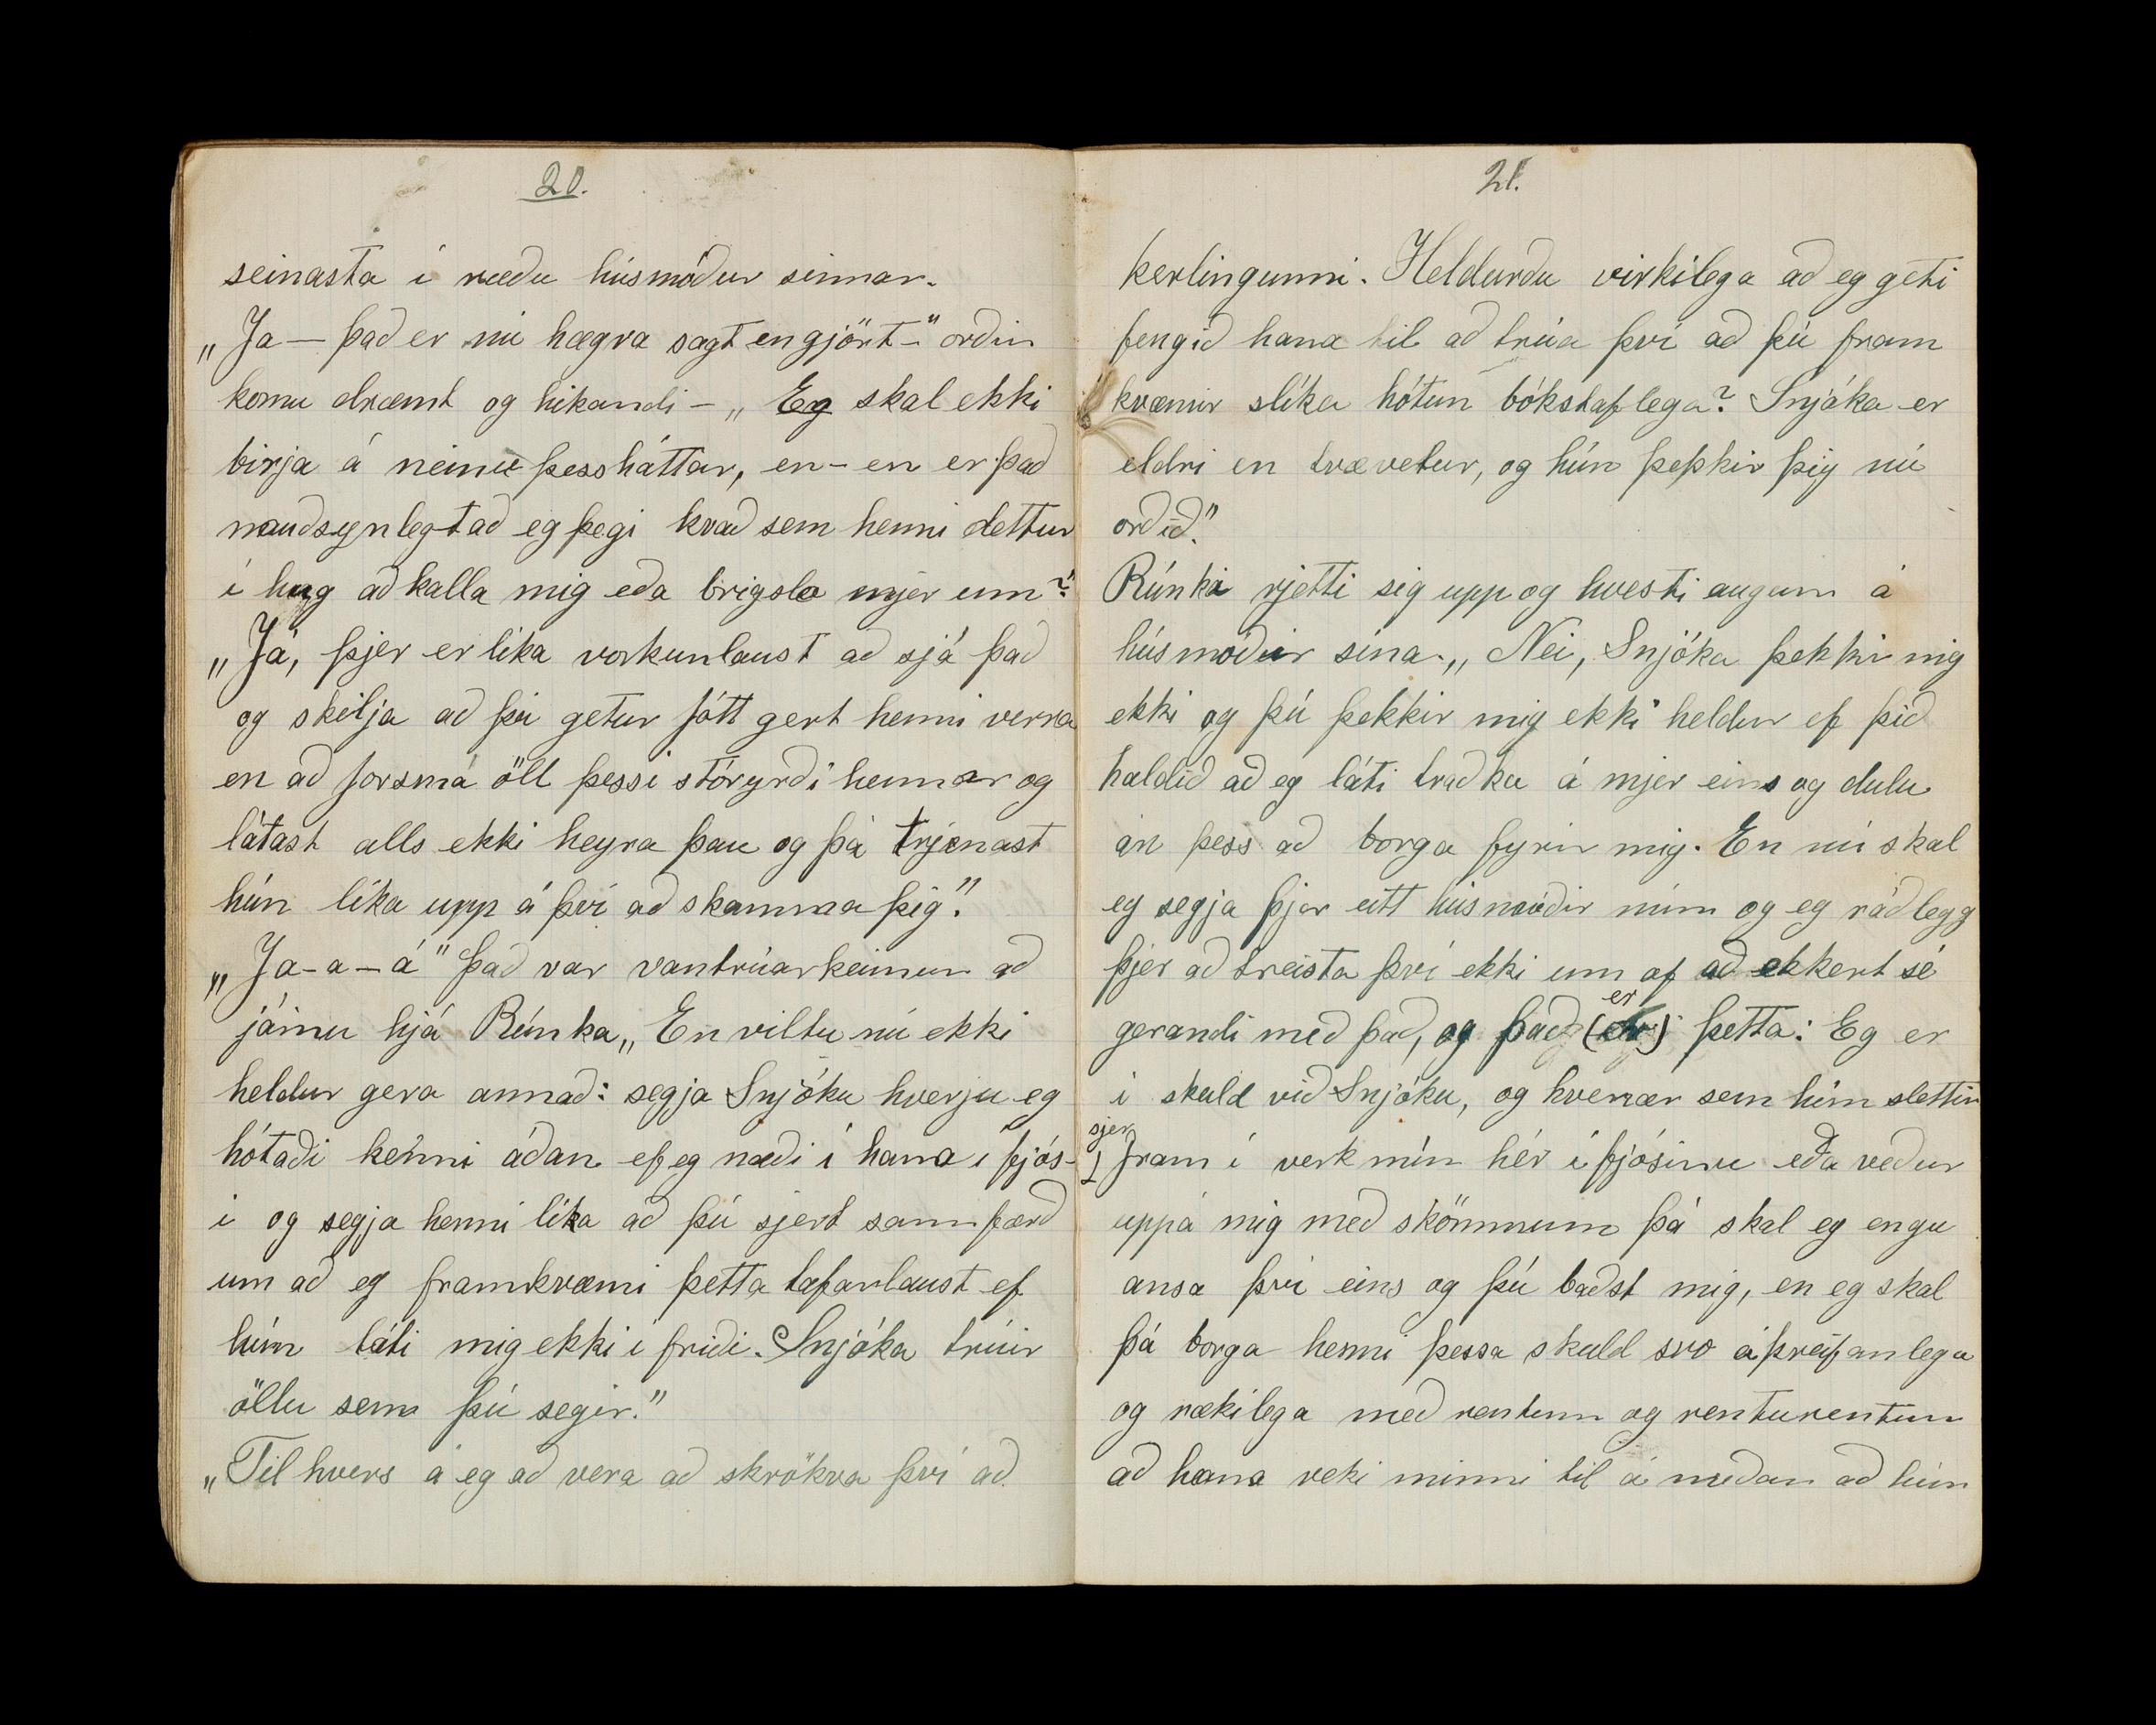 20.
seinasta í ræðu húsmóður sinnar.
„Ja — það er nú hægra sagt en gjört —" orðin
komu dræmt og hikandi — „Eg skal ekki
birja á neinu þessháttar, en - en er það
nauðsynlegt að eg þegi hvað sem henni dettur
í hug að kalla mig eða brigsla mjer um?"
„Já, þjer er líka vorkunlaust að sjá það
og skilja að þú getur fátt gert henni verra
en að forsmá öll þessi stóryrði hennar og
látast alls ekki heyra þau og þá trjenast
hún líka upp á því að skamma þig."
„Ja-a-á" Það var vantrúarkeimur að
jáinu hjá Rúnka „En viltu nú ekki
heldur gera annað: segja Snjóku hverju eg
hótaði henni áðan ef eg næði í hana í fjós-
i og segja henni líka að þú sjert sannfærð
um að eg framkvæmi þetta tafarlaust ef
hún láti mig ekki í friði. Snjóka trúir
öllu sem þú segir."
„Til hvers á eg að vera að skrökva því að
21.
kerlingunni. Heldurðu virkilega að eg geti
fengið hana til að trúa því að þú fram
kvæmir slíka hótun bókstaflega? Snjóka er
eldri en tvævetur, og hún þekkir þig nú
orðið."
Rúnki rjetti sig upp og hvesti augum á
húsmóður sína. „Nei, Snjóka þekkir mig
ekki og þú þekkir mig ekki heldur ef þið
haldið að eg láti traðka á mjer eins og dulu
án þess að borga fyrir mig. En nú skal
eg segja þjer eitt húsmóðir mín og eg ráðlegg
þjer að treista því ekki um of að ekkert sé
gerandi með það, og það er þetta: Eg er
í skuld við Snjóku, og hvenær sem hún slettir
sjer fram í verk mín hér í fjósinu eða veður
uppá mig með skömmum þá skal eg engu
ansa því eins og þú baðst mig, en eg skal
þá borga henni þessa skuld svo áþreifanlega
og rækilega með rentum og renturentum
að hana reki minni til á meðan að hún